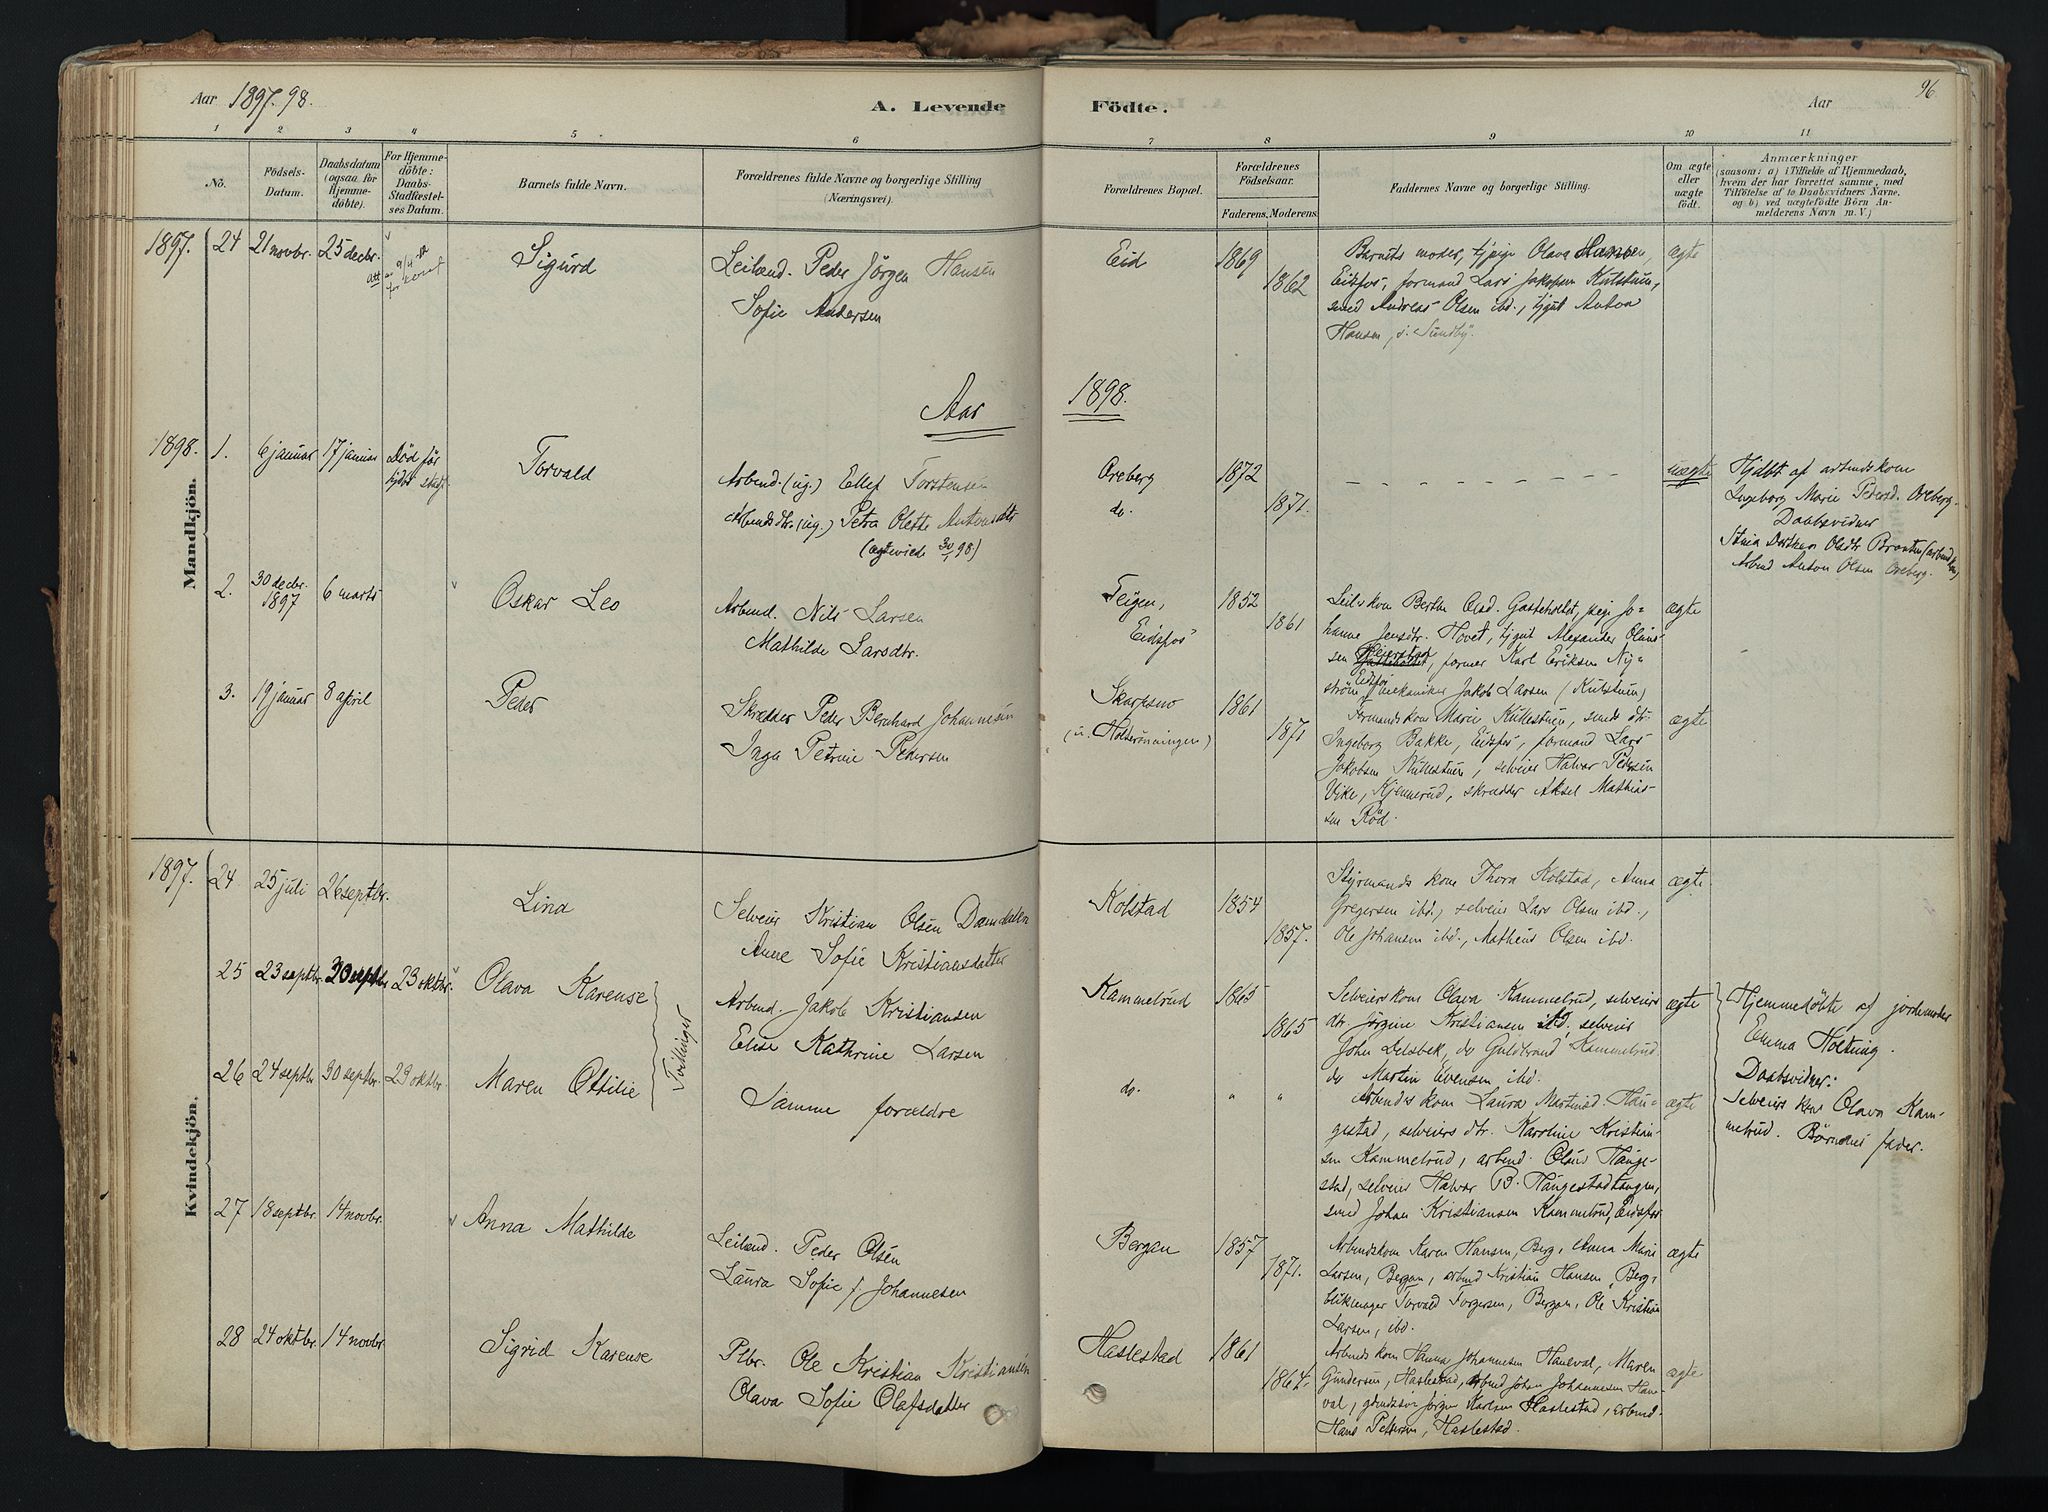 Aar 1897.98.
A. Levende
Födte.
Aar
96
1 2 3 4 5 6 7 8 9 10 11
No.
Födsels-
Datum.
Daabsdatum
(ogsaa for
Hjemme-
döbte).
For Hjemme-
döbte:
Daabs-
Stadfæstel-
ses Datum.
Barnets fulde Navn.
Forældrenes fulde Navne og borgerlige Stilling
(Næringsvei).
Forældrenes Bopæl.
Forældrenes
Födselsaar.
Faderens. Moderens.
Faddernes Navne og borgerlige Stilling.
Om ægte
eller
uægte
födt.
Anmærkninger
(saasom: a) i Tilfælde af Hjemmedaab,
hvem der har forrettet samme, med
Tilföielse af to Daabsvidners Navne,
og b) ved uægtefödte Börn An-
melderens Navn m. V.)
Mandkjön.
1897. 24 21 novbr. 25 decbr.
Sigurd
Leilænd. Peder Jörgen Hansen
Sofie Andersen
Eid
1869
1862
Barnets moder, tjpige Olava Hansen,
Eidsfos, formand Lars Jakobsen Kulstuen,
smed Andreas Olsen ibd., tjgut Anton
Hansen, i Sundby.
ægte
Aar 1898.
1898. 1. 6 januar 17 januar
Död før
Torvald
Arbeid. (ug.) Ellef Torstensen
Arbeidsdtr. (ug.) Petra Olette Antonsdtr
(ægteviede 30/1 98)
Oreberg
do.
1872
1871.
uægte
Hjdöbt af arbeidskom
Ingeborg Marie Pedersd. Oreberg.
Daabsvidner
Olsdtr
Arbeid Anton Olsen Oreberg.
2. 30 decbr. 1897 6 marts
Oskar Leo
Arbeid. Nils Larsen
Mathilde Larsdtr.
Teigen,
Eidsfos
1852
1861
Leil. kon Berthe Olsd. Gasteholtet, pige Jo-
hanne Jensdtr. Hovet, tjgut Alexander Olaus-
sen, former Karl Eriksen Ny-
ström, Eidsfos mekaniker Jakob Larsen (Kulstuen)
ægte
3. 19 januar 8 april
Peder
Skrædder Peder Bernhard Johannesen
Inga Petrine Pedersen
Skarpsno
(u. Holterönningen)
1861
1871
Formandskone Marie Kullestuen, smeds dtr.
Ingeborg Bakke, Eidsfos, formand Lars
Jakobsen Kullestuen, selveier Halvor Pedersen
Vike, Kjennerud, skrædder Aksel Mathis-
sen Röd.
ægte
Kvindekjön.
1897. 24 25 juli 26 septbr.
Lina
Selveier Kristian Olsen Damdalen
Anne Sofie Kristiansdatter
Kolstad
1854
1857.
Styrmands kone Thora Kolstad, Anna
Gregersen ibd., selveier Lars Olsen ibd.,
Ole Johansen ibd., Matheus Olsen ibd.
ægte
25 23 septbr. 30 septbr 23 oktbr.
Olava Karense
Tvillinger
Arbeid. Jakob Kristiansen
Elise Kathrine Larsen
Kammelrud
1865
1865
Selveierskone Olava Kammelrud, selveiers
dtr. Jörgine Kristiansen ibd. selveier
John Lilsbek, do Guldbrand Kammelrud,
do Martin Evensen ibd.
ægte
Hjemmedöbte af jordemoder
Emma Holtung.
Daabsvidner:
Selveiers kone Olava Kam-
melrud. Börnenes fader.
26 24 septbr 30 septbr. 23 oktbr.
Maren Otilie
Samme forældre
do.
" "
Arbeids kone Laura Martinsd. Hau-
gestad, selveiers dtr. Karoline Kristian-
sen Kammelrud, arbeid. Olaus Hauge-
stad, selveier Halvor B. Haugestadtangen,
smed Johan Kristiansen Kammelrud, Eidsfos
ægte
27 18 septbr. 14 novbr.
Anna Mathilde
Leilænd. Peder Olsen
Laura Sofie f Johannesen
Bergan
1857
1871.
Arbeidskone Karen Hansen, Berg, Anna Marie
Larsen, Bergan, arbeid Kristian Hansen, Berg,
Torvald Torgersen, Bergan, Ole Kristian
Larsen, ibd.
ægte
28 24 oktbr. 14 novbr.
Sigrid Karense
Plbr. Ole Kristian Kristiansen
Olava Sofie Olafsdatter
Haslestad
1861
1864.
Arbeids kone Hanna Johannesen Haneval, Maren
Gundersen, Haslestad, arbeid Johan Johannesen Han-
val, gaardeier Jörgen Karlsen Haslestad, arbeid.
Hans Pettersen, Haslestad.
ægte